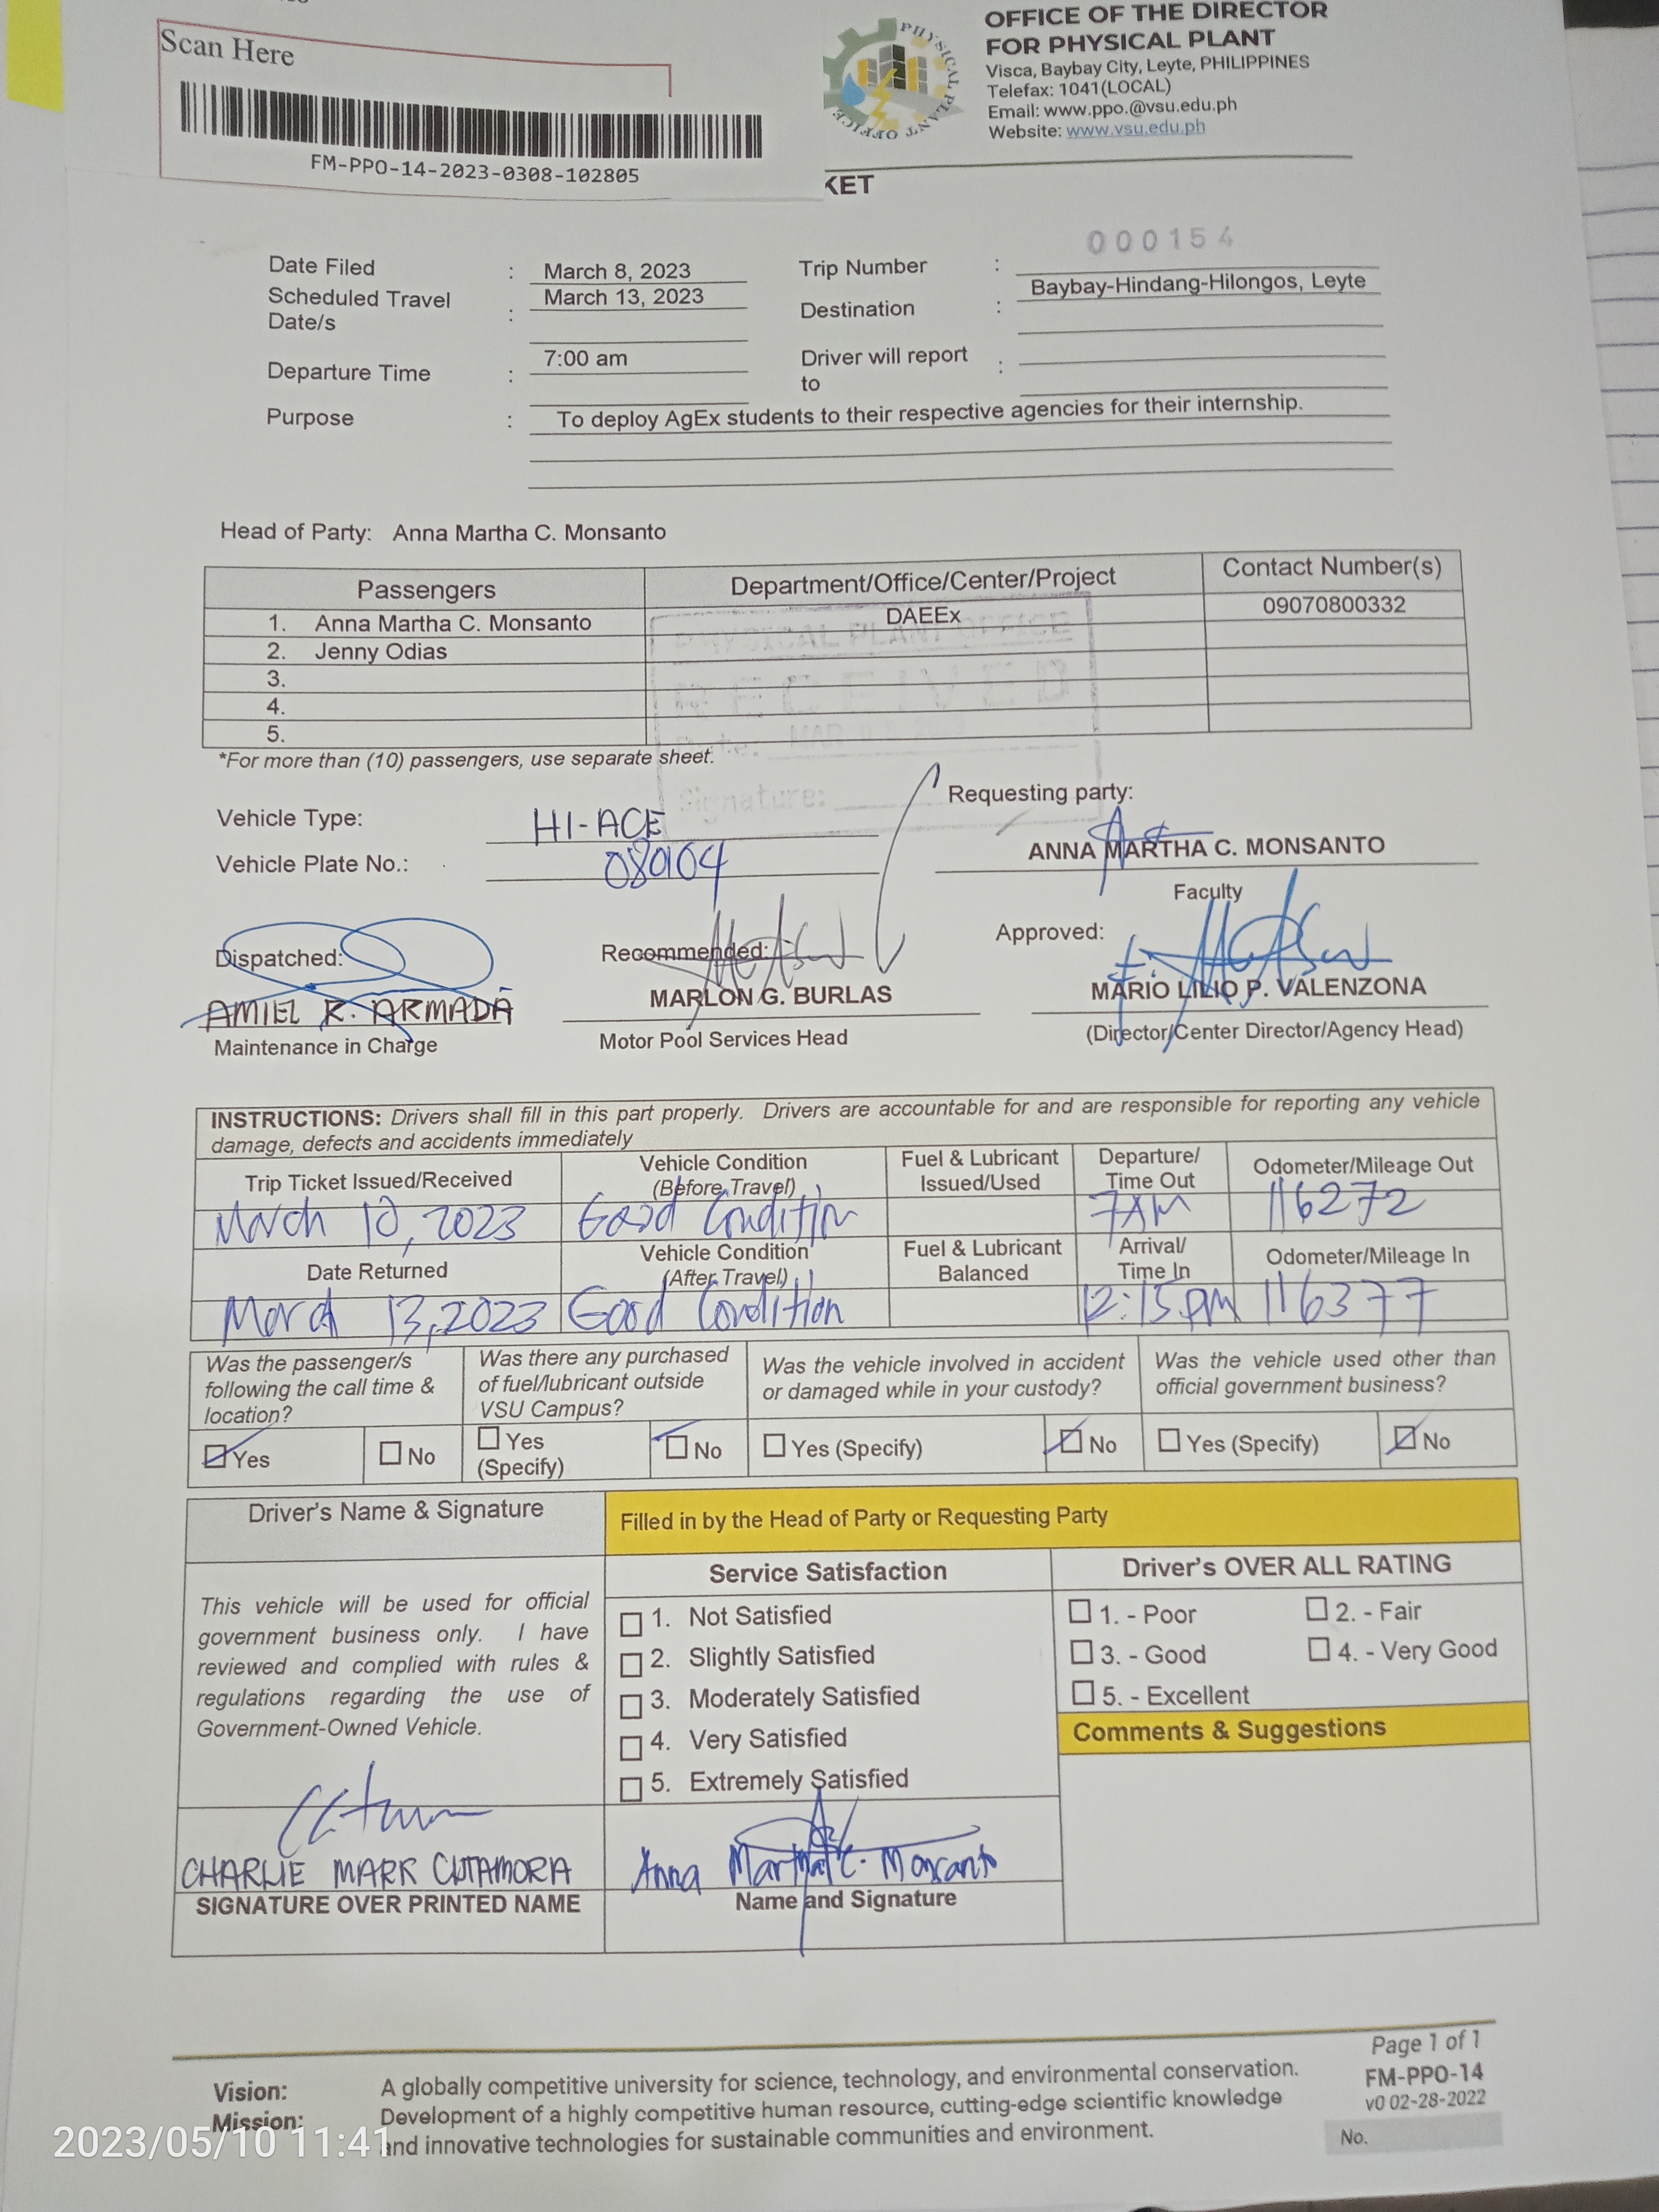 Scan Here
FM-PPO-14-2023-0308-102805
PHYSICAL PLANT OFFICE
OFFICE OF THE DIRECTOR
FOR PHYSICAL PLANT
Visca, Baybay City, Leyte, PHILIPPINES
Telefax: 1041(LOCAL)
Email: www.ppo.@vsu.edu.ph
Website: www.vsu.edu.ph
KET
000154
Date Filed : March 8, 2023 Trip Number :
Scheduled Travel Date/s : March 13, 2023 Destination : Baybay-Hindang-Hilongos, Leyte
Departure Time : 7:00 am Driver will report to :
Purpose : To deploy AgEx students to their respective agencies for their internship.
Head of Party: Anna Martha C. Monsanto
Passengers Department/Office/Center/Project Contact Number(s)
1. Anna Martha C. Monsanto DAEEx 09070800332
2. Jenny Odias
3.
4.
5.
PHYSICAL PLANT OFFICE
RECEIVED
Date: MAR
Signature:
*For more than (10) passengers, use separate sheet.
Vehicle Type: HI-ACE Requesting party:
Vehicle Plate No.: 080104 ANNA MARTHA C. MONSANTO
Faculty
Dispatched: Recommended: Approved:
AMIEL R. ARMADA MARLON G. BURLAS MARIO LILIO P. VALENZONA
Maintenance in Charge Motor Pool Services Head (Director/Center Director/Agency Head)
INSTRUCTIONS: Drivers shall fill in this part properly. Drivers are accountable for and are responsible for reporting any vehicle
damage, defects and accidents immediately
Trip Ticket Issued/Received Vehicle Condition (Before Travel) Fuel & Lubricant Issued/Used Departure/ Time Out Odometer/Mileage Out
March 10, 2023 Good Condition 7AM 116272
Date Returned Vehicle Condition (After Travel) Fuel & Lubricant Balanced Arrival/ Time In Odometer/Mileage In
March 13, 2023 Good Condition 12:15 pm 116377
Was the passenger/s following the call time & location? Was there any purchased of fuel/lubricant outside VSU Campus? Was the vehicle involved in accident or damaged while in your custody? Was the vehicle used other than official government business?
Yes No Yes (Specify) No Yes (Specify) No Yes (Specify) No
Driver's Name & Signature Filled in by the Head of Party or Requesting Party
Service Satisfaction Driver's OVER ALL RATING
This vehicle will be used for official
government business only. I have
reviewed and complied with rules &
regulations regarding the use of
Government-Owned Vehicle.
1. Not Satisfied
2. Slightly Satisfied
3. Moderately Satisfied
4. Very Satisfied
5. Extremely Satisfied
1. - Poor 2. - Fair
3. - Good 4. - Very Good
5. - Excellent
Comments & Suggestions
CHARLIE MARK CUTAMORA Anna Martha C. Monsanto
SIGNATURE OVER PRINTED NAME Name and Signature
Page 1 of 1
FM-PPO-14
v0 02-28-2022
No.
Vision: A globally competitive university for science, technology, and environmental conservation.
Mission: Development of a highly competitive human resource, cutting-edge scientific knowledge
and innovative technologies for sustainable communities and environment.
2023/05/10 11:41